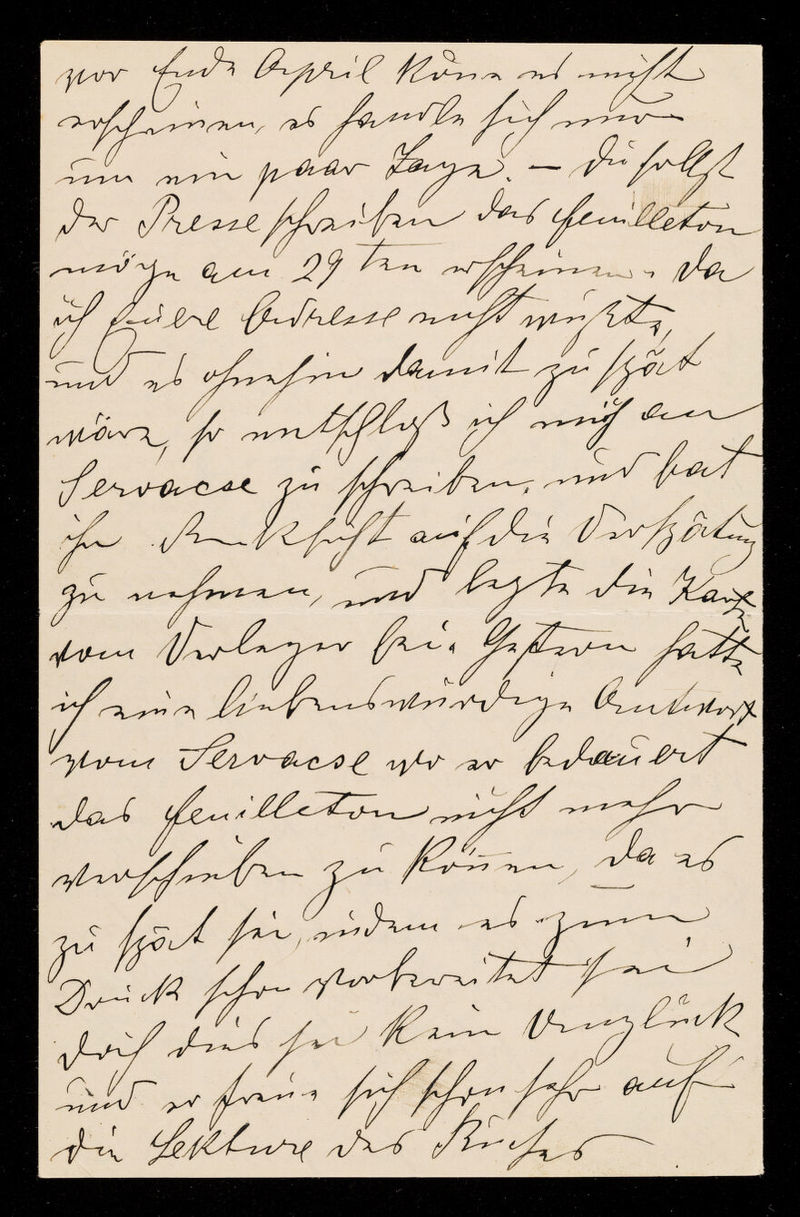 vor Ende April könne es nicht
erscheinen, es handle sich nur
um ein paar Tage. – Du sollst
der Presse schreiben das Feuilleton
möge am 29ten erscheinen. Da
ich Euere Adresse nicht wußte,
und es ohnehin damit zu spät
wäre, so entschloß ich mich an
Servaese zu schreiben, und bat
ihn Rücksicht auf die Verspätung
zu nehmen, und legte die Karte
vom Verleger bei. Gestern hatte
ich eine liebenswürdige Antwort
vom Servaese wo er bedauert
das Feuilleton nicht mehr
verschieben zu können, da es
zu spät sei, indem es zum
Druck schon vorbereitet sei
doch dies sei kein Unglück
und er freue sich schon sehr auf
die Lekture des Buches